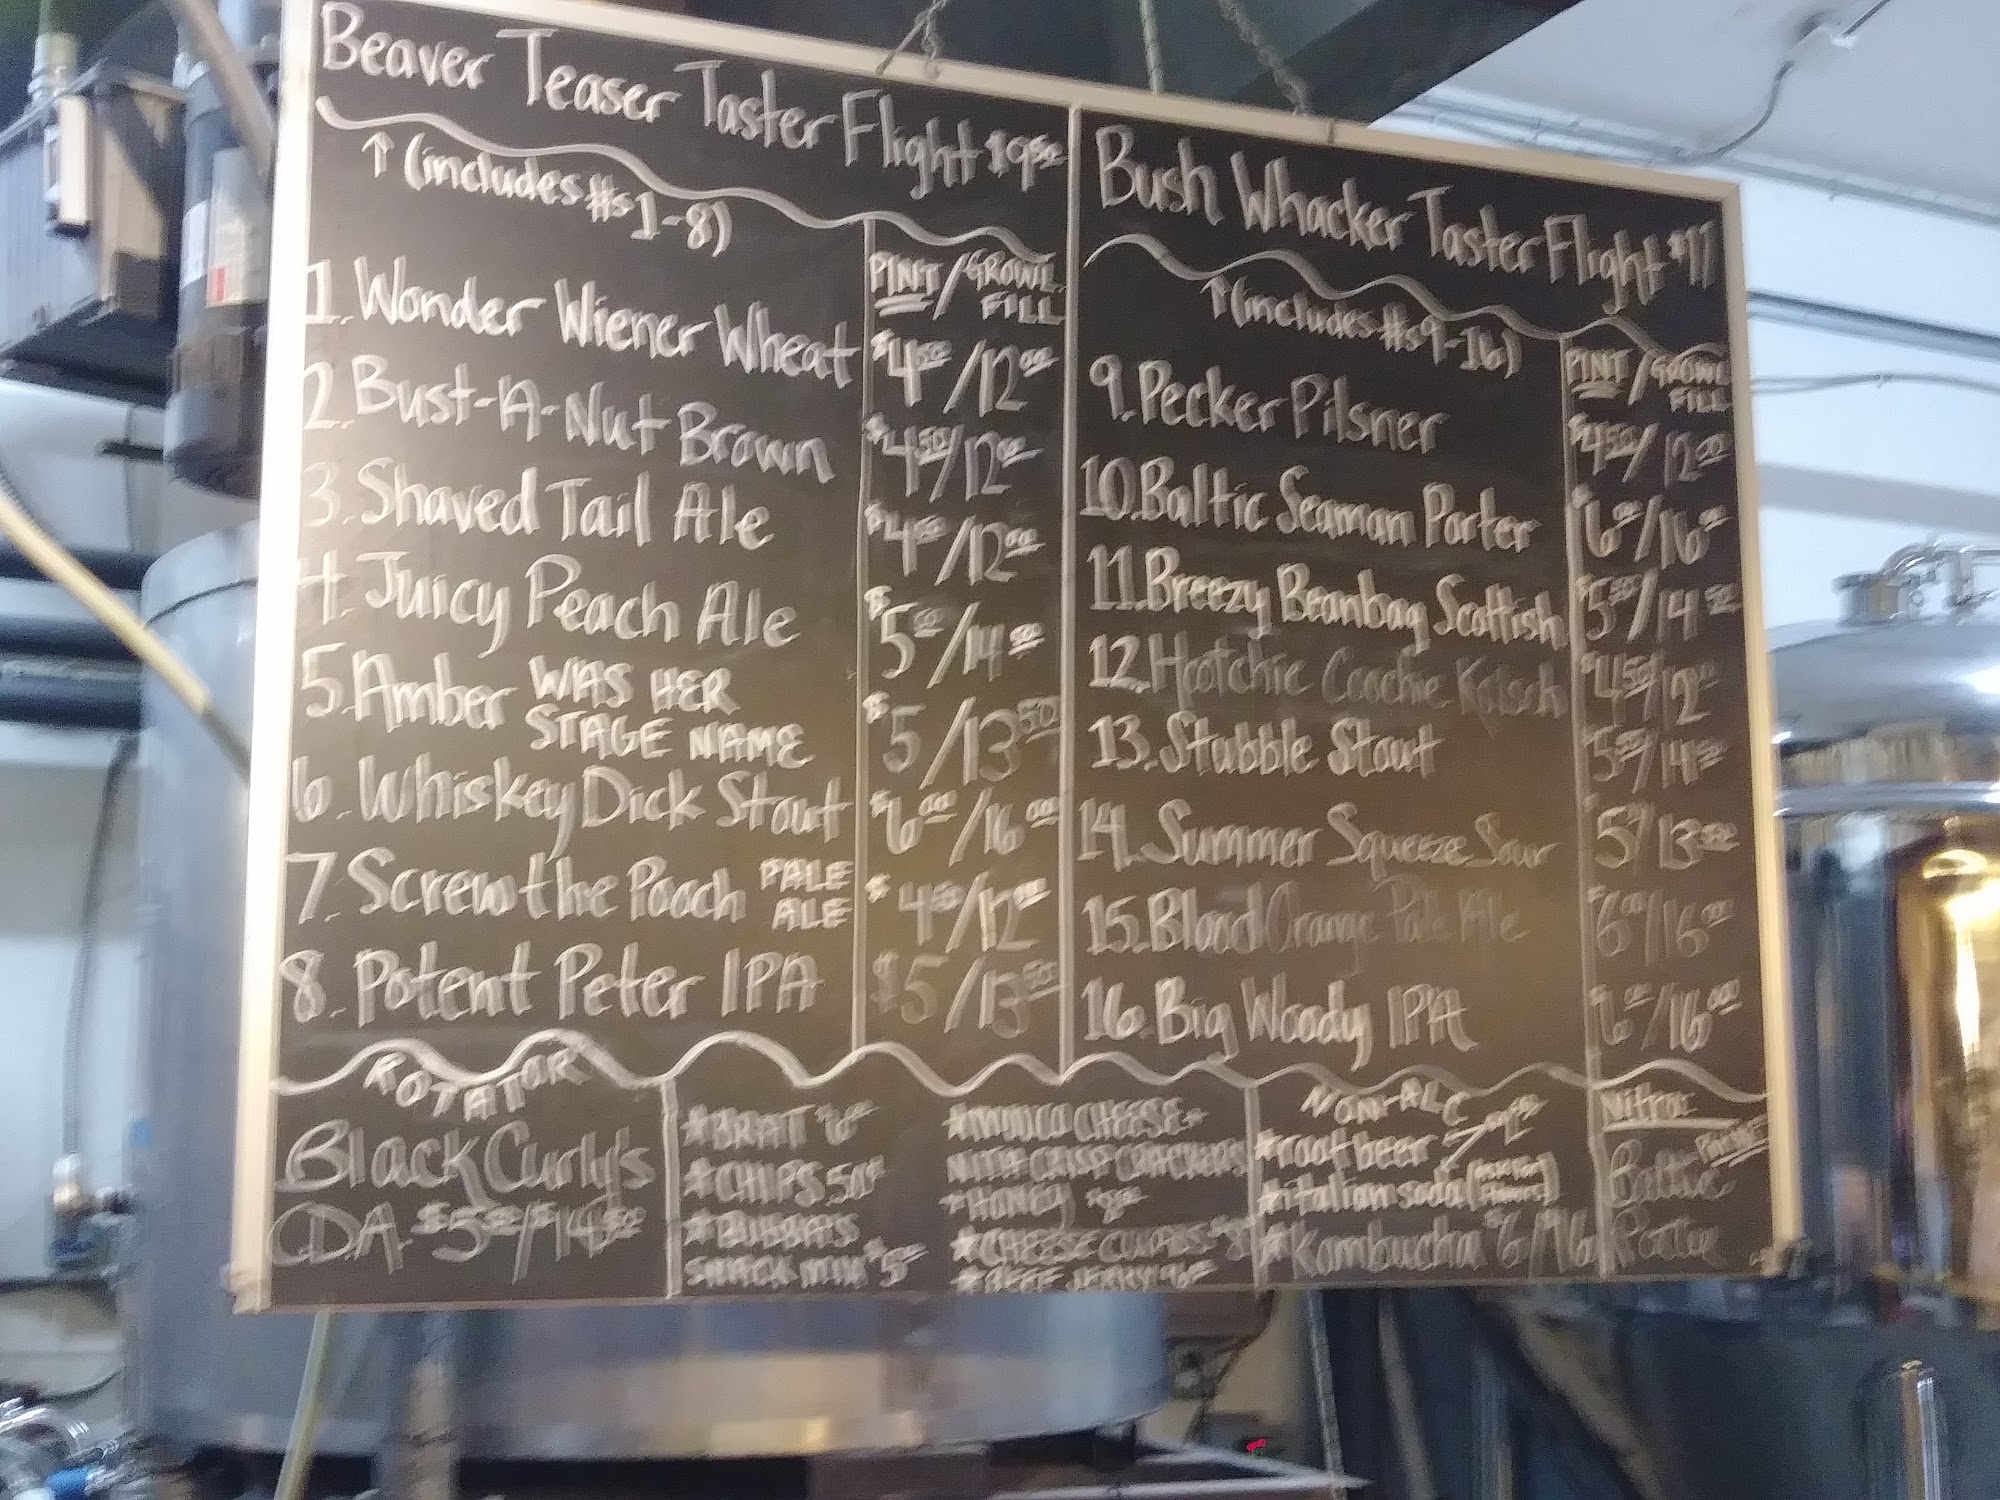 Beaver Teaser Taster Flight $9.50
↑ (includes #s 1-8)
PINT / GROWL. FILL
1. Wonder Wiener Wheat $4.50/12.00
2. Bust-A-Nut Brown $4.50/12.00
3. Shaved Tail Ale $4.50/12.00
4. Juicy Peach Ale $5.50/14.50
5. Amber WAS HER STAGE NAME $5/13.50
6. Whiskey Dick Stout $6.00/16.00
7. Screw the Pooch PALE ALE $4.50/12.00
8. Potent Peter IPA $5/13.50
Bush Whacker Taster Flight $11
↑ (includes #s 9-16)
PINT / GROWL FILL
9. Pecker Pilsner $4.50/12.00
10. Baltic Seaman Porter $6.00/16.00
11. Breezy Beanbag Scottish $5.50/14.50
12. Hootchie Coochie Kolsch $4.50/12
13. Stubble Stout $5.50/14.50
14. Summer Squeeze Sour 5/13.50
15. Blood Orange Pale Ale 6.00/16.00
16. Big Woody IPA 6.00/16.00
ROTATOR
Black Curly's
CDA $5.50/$14.50
*BRAT $6
*CHIPS 50¢
*BUBBA'S
SNACK MIX $5
CHEESE
WITH CRISP CRACKERS
HONEY $8
*CHEESE CURDS $8
*BEEF JERKY
NON-ALC
*root beer
*italian soda
*Kombucha $6/16
Nitro:
Baltic
Porter